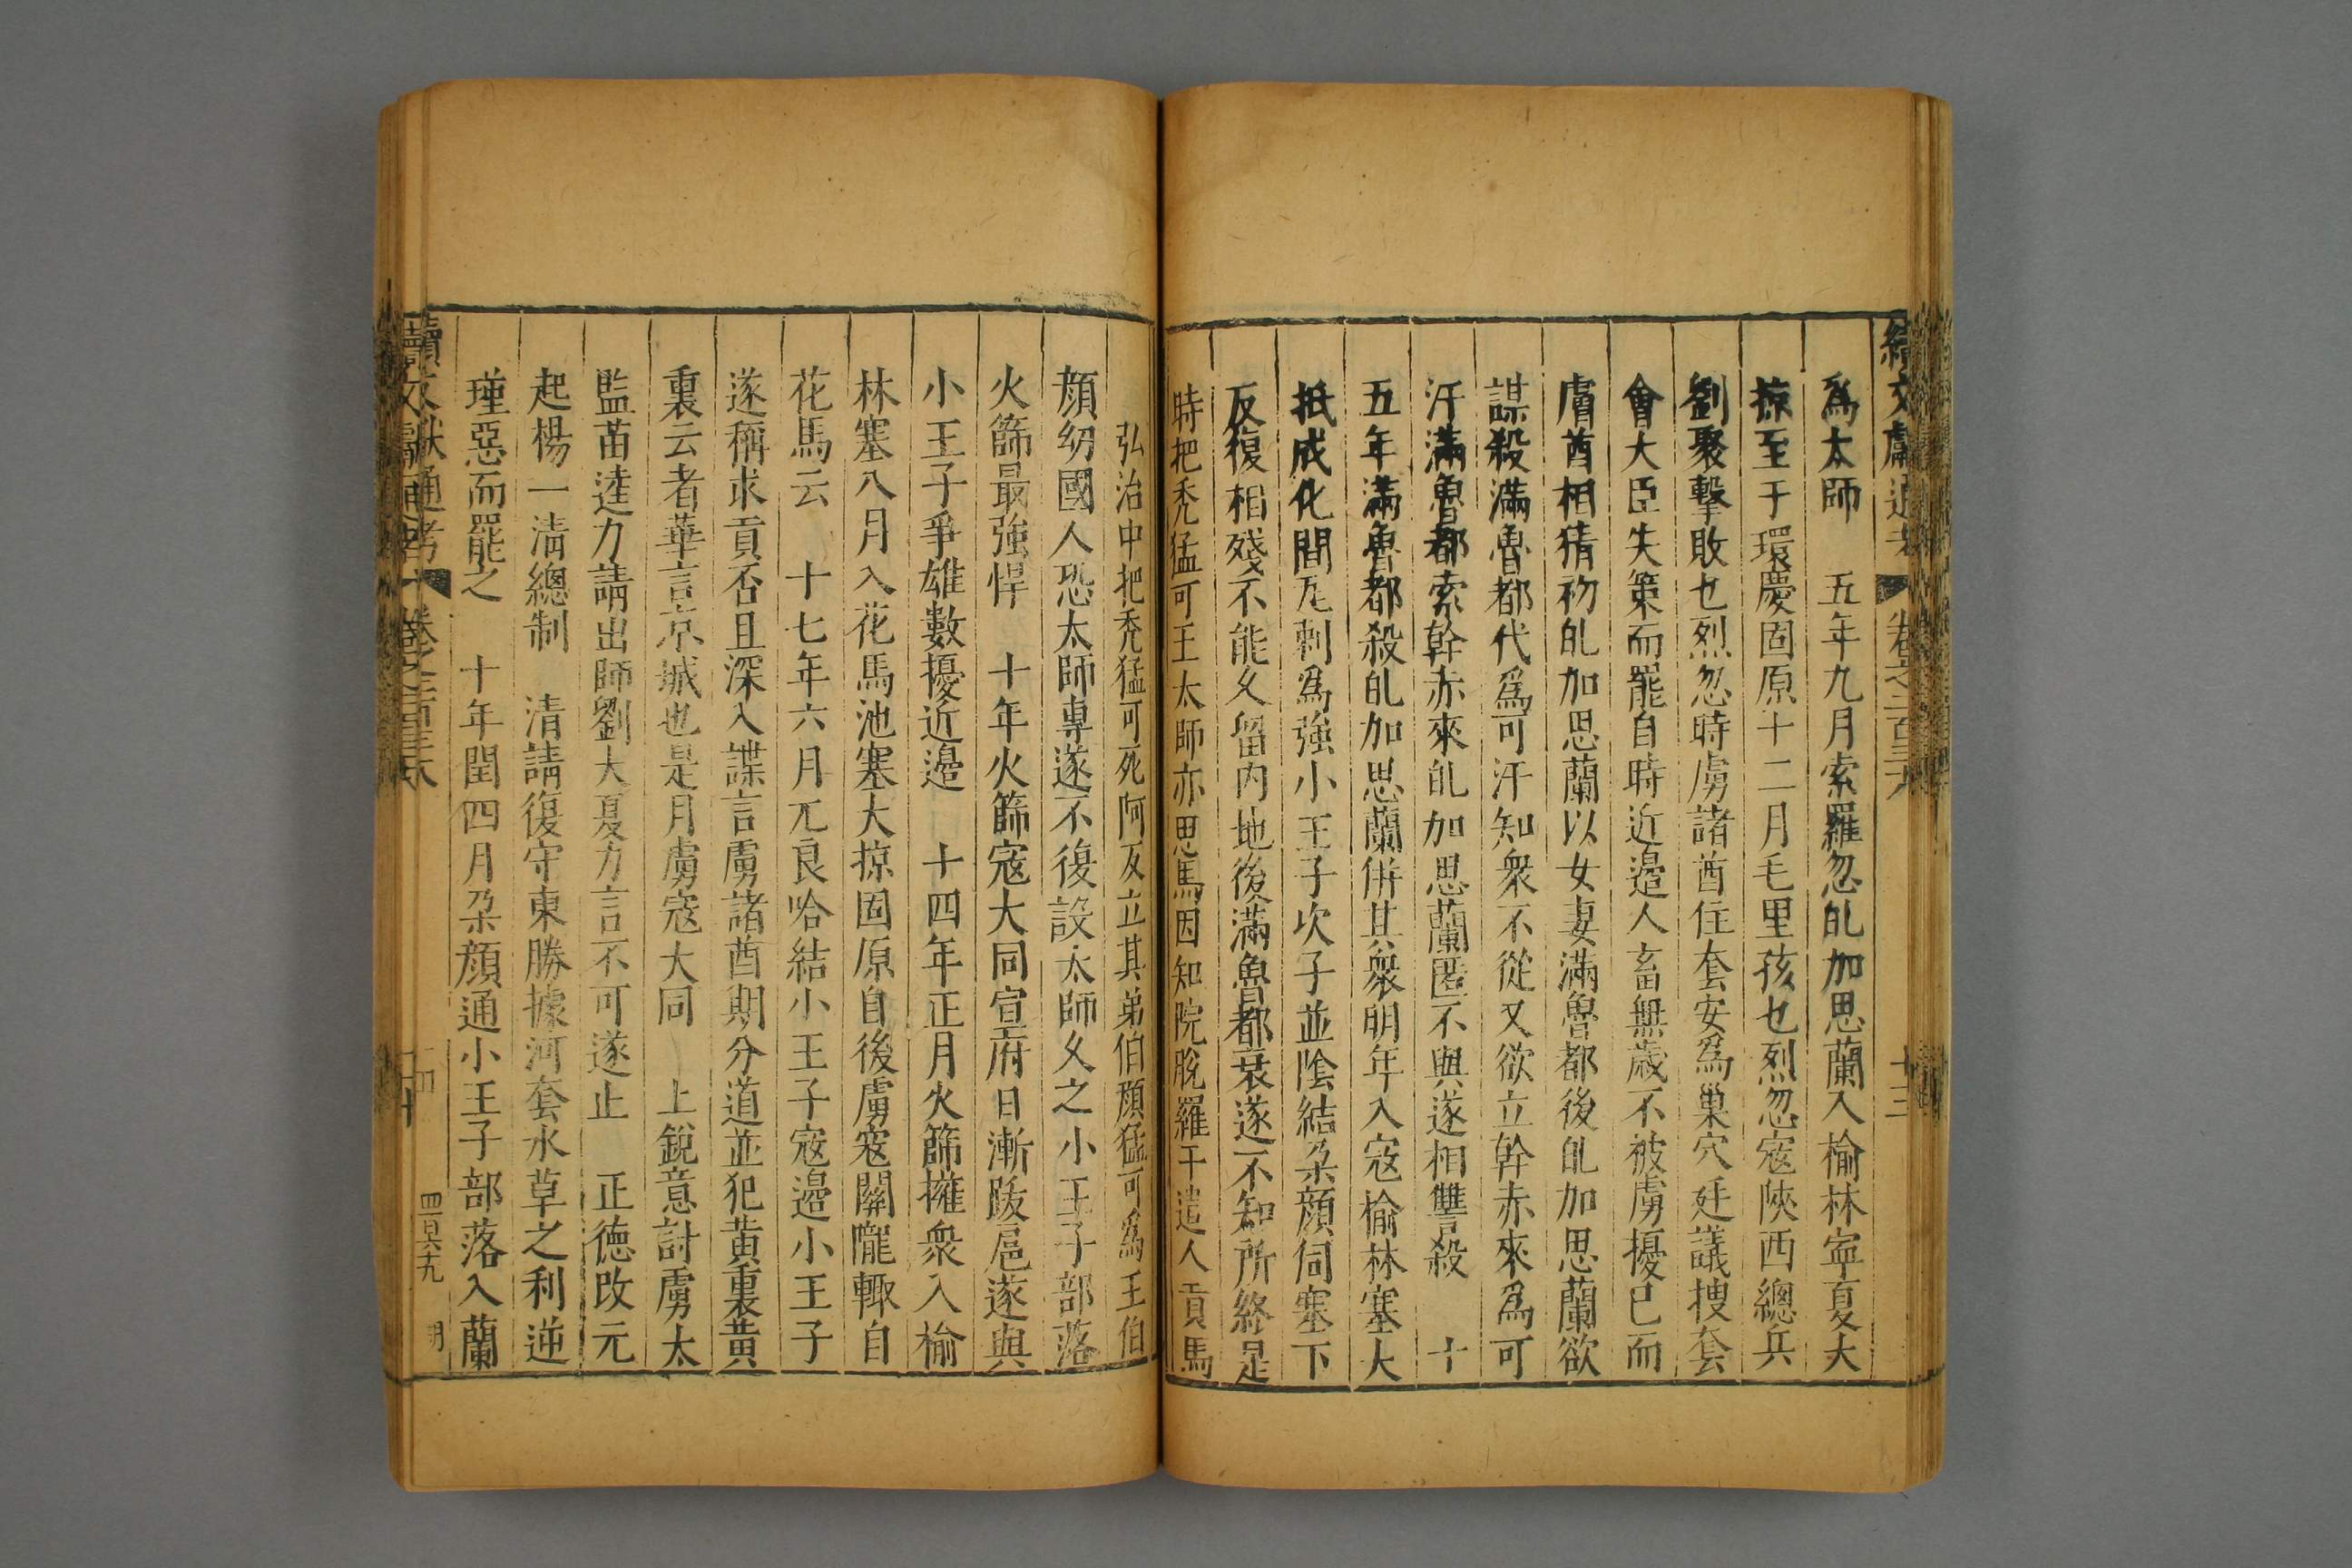 爲太師　五年九月索羅忽癿加思蘭入榆林寧夏大
掠至于環慶固原十二月毛里孩也烈忽寇陝西總兵
劉聚擊敗也烈忽時虜諸酋住套安爲巢穴廷議搜套
會大臣失策而罷自時近邊人畜無歲不被虜擾已而
膚酋相猜初癿加思蘭以女妻滿魯都後癿加思蘭欲
謀殺滿魯都代爲可汗知衆不從又欲立幹赤來爲可
汗滿魯都索幹赤來癿加思蘭匿不與遂相讐殺　十
五年滿魯都殺癿加思蘭併其衆明年入寇榆林塞大
抵成化間瓦剌爲強小王子次子並陰結朶顏伺塞下
反復相殘不能久留內地後滿魯都衰遂不知所終是
時把禿猛可王太師亦思馬因知院脫羅干遣人貢馬
弘治中把禿猛可死阿反立其弟伯顏猛可爲王伯
顏幼國人恐太師專遂不復設太師久之小王子部落
火篩最強悍　十年火篩寇大同宣府日漸跋扈遂與
小王子爭雄數擾近邊　十四年正月火篩擁衆入榆
林塞八月入花馬池塞大掠固原自後虜寇關隴輙自
花馬云　十七年六月兀良哈結小王子寇邊小王子
遂稱求貢否且深入諜言虜諸酋期分道並犯黃裏黃
裏云者華言京城也是月虜寇大同　上銳意討虜太
監苗逵力請出師劉大夏力言不可遂止　正德改元
起楊一淸總制　清請復守東勝據河套水草之利逆
瑾惡而罷之　十年閏四月朶顏通小王子部落入蘭
續文獻通考